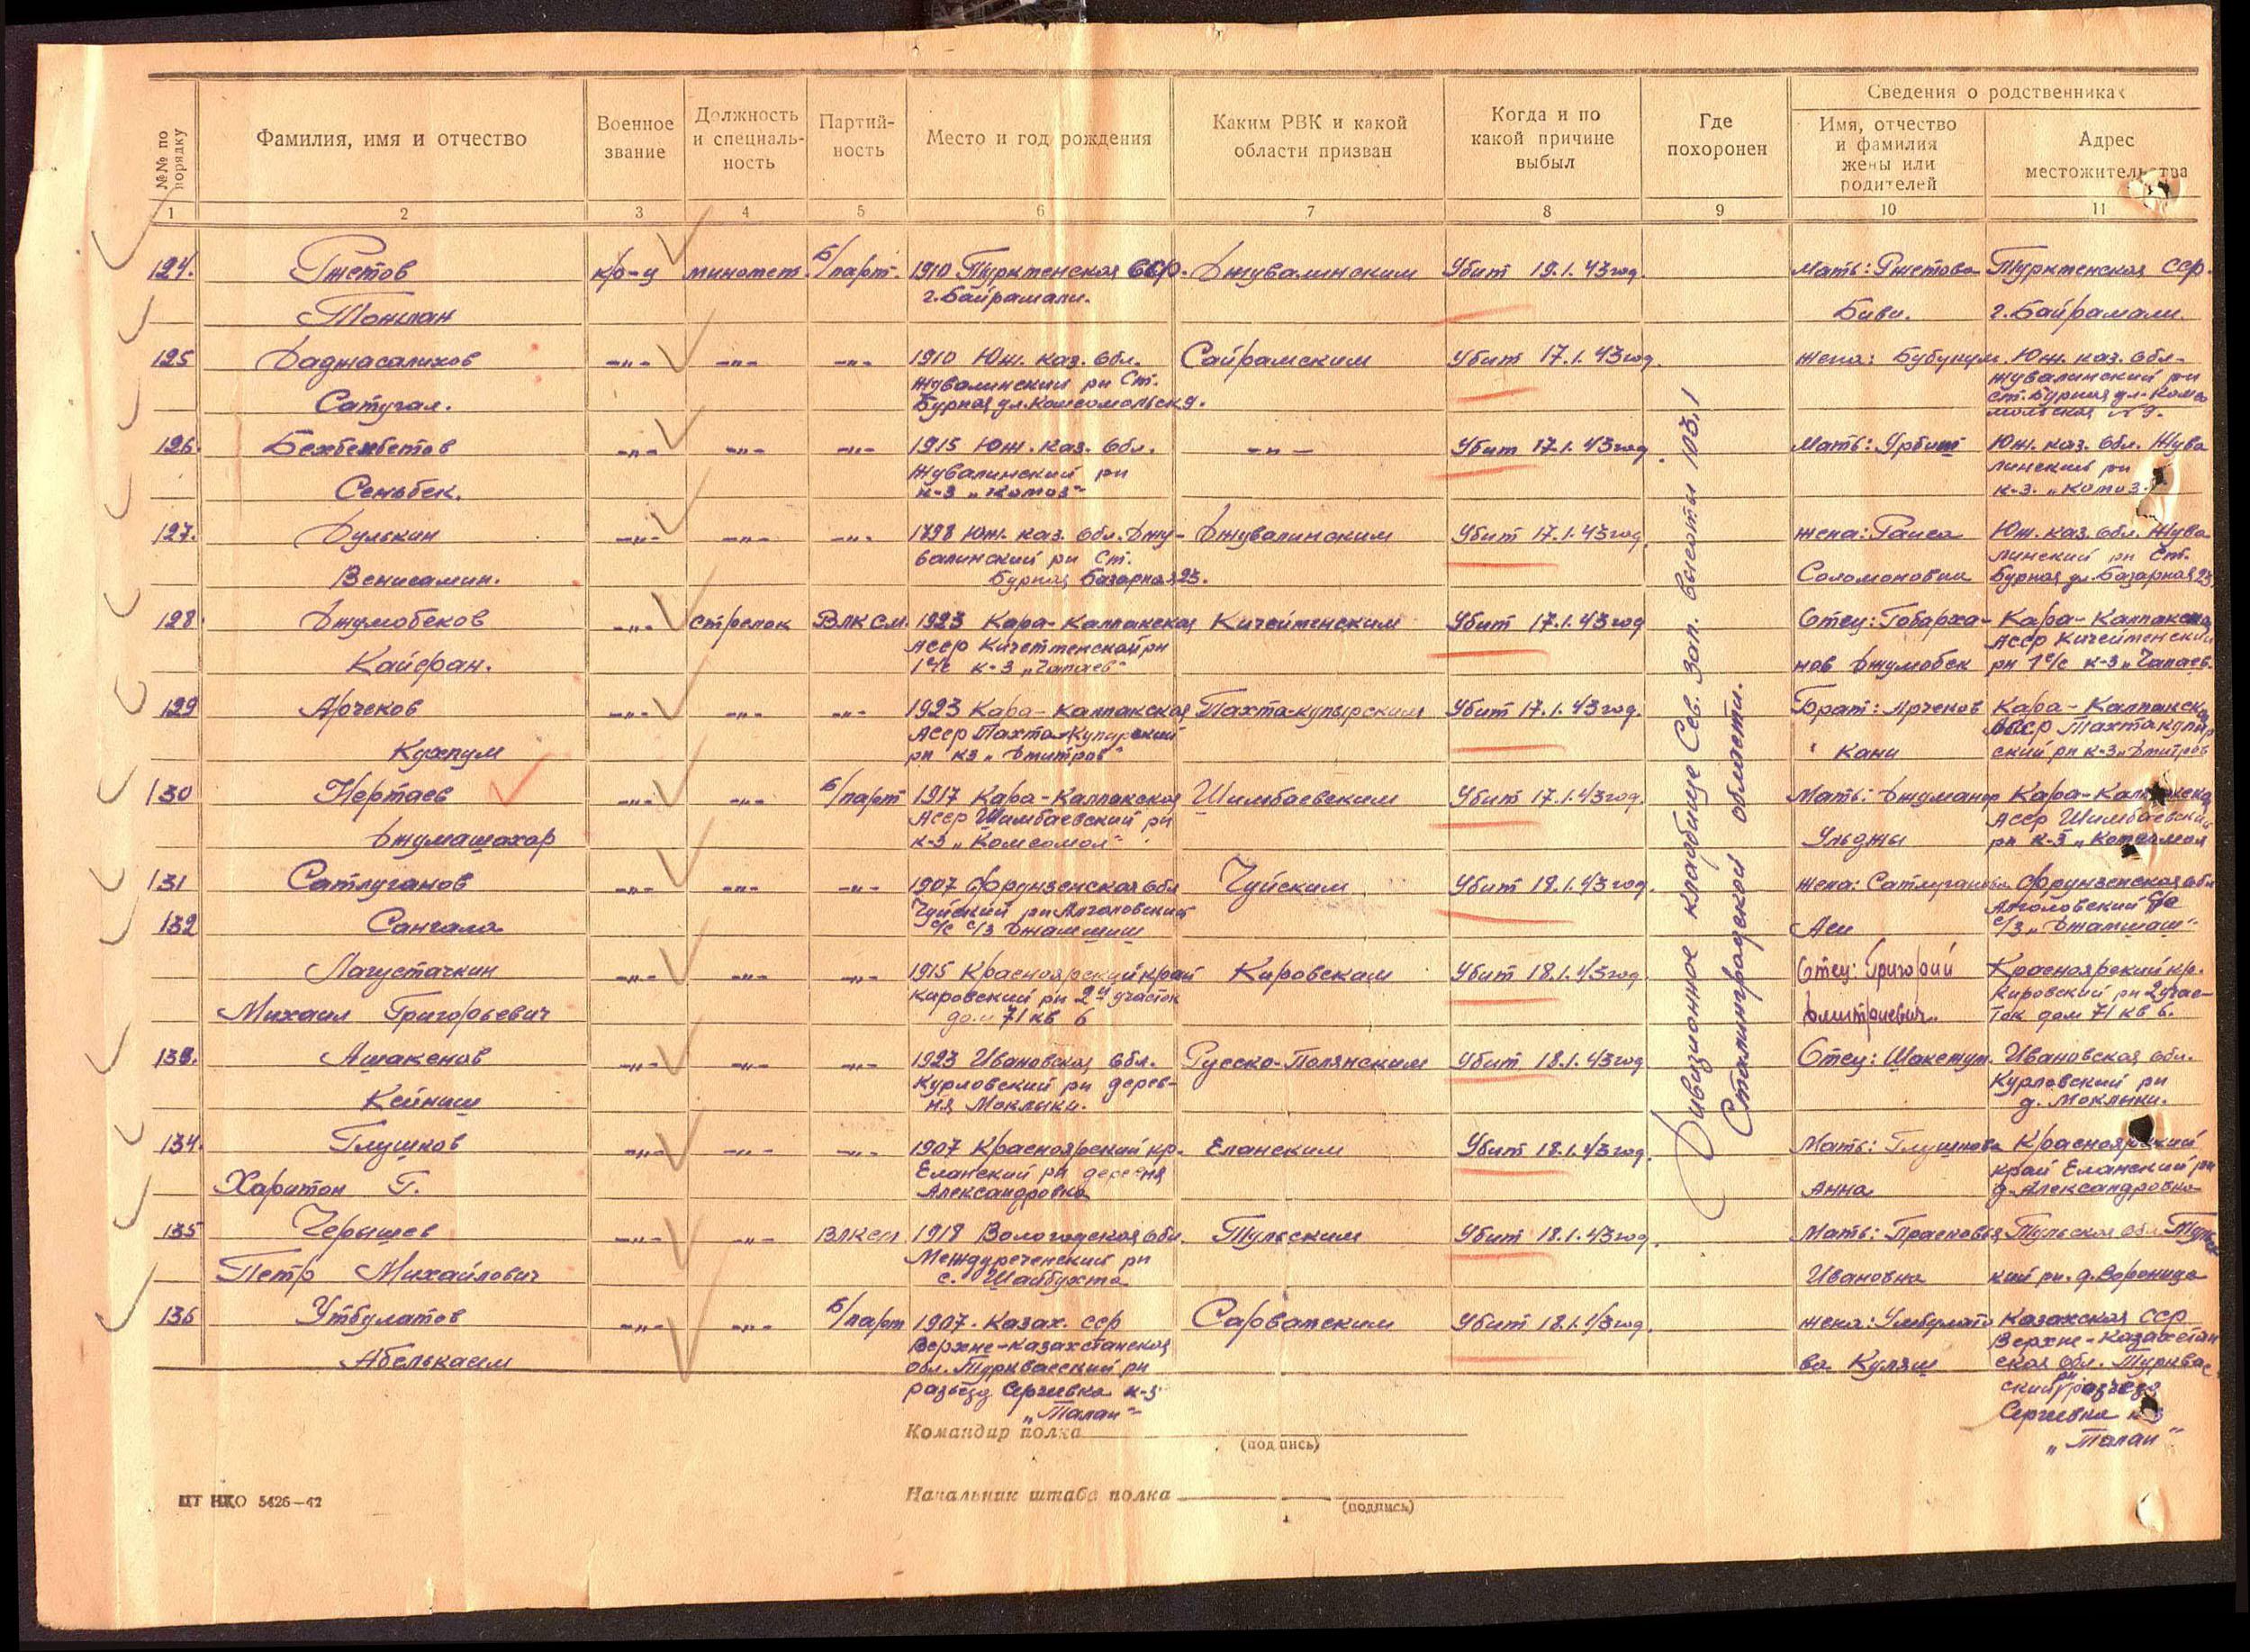 Сведения о родственниках
№№ по порядку
Фамилия, имя и отчество
Военное звание
Должность и специальность
Партийность
Место и год рождения
Каким РВК и какой области призван
Когда и по какой причине выбыл
Где похоронен
Имя, отчество и фамилия жены или родителей
Адрес местожительства
1 2 3 4 5 6 7 8 9 10 11
124. Ржетов к/р-ц миномет. б/парт. 1910 Туркменская ССР. Джувалинским Убит 19.1.43 год. Мать: Ржетова Туркменская ССР.
г. Байрамали.
Тоншан Биби. г. Байрамали.
125 Даджасалихов -"- -"- -"- 1910 Юж. каз. обл. Сайрамским Убит 17.1.43 год. жена: Бубунум Юж. каз. обл-
жувалинский рн Ст. жувалинский рн
Сатугал. Бурная ул. Комсомольск 9. ст. Бурная ул. Комсо
мольская № 9.
126. Бекбембетов -"- -"- -"- 1915 Юж. каз. обл. -"- Убит 17.1.43 год Мать: Урбит Юж. каз. обл. Жува
жувалинский рн линский рн
Сеньбек. к-з „Комоз" к-з. „Комоз."
127. Дулькин -"- -"- -"- 1898 Юж. каз. обл. Джу- Джувалинским Убит 17.1.43 год. жена: Раиса Юж. каз. обл. Жува
валинский рн Ст. линский рн Ст.
Вениамин. Бурная Базарная 23. Соломоновна Бурная ул. Базарная 23
128. Джумобеков -"- стрелок ВЛКСМ. 1923 Кара-Калпакская Кичейтенским Убит 17.1.43 год Отец: Гобарха- Кара-Калпакская
АССР Кичетменской рн АССР Кичейтенский
Кайфран. 1 с/с к-з „Чапаев" нов Джумобек рн 1 с/с к-з „Чапаев.
129 Арчеков -"- -"- -"- 1923 Кара-Калпакская Тахта-купырским Убит 17.1.43 год. Брат: Арченов Кара-Калпакская
АССР Тахта-Купырский АССР Тахтакупыр
Кухпум рн к-з „Дмитров" Кани ский рн к-з „Дмитров
130 Нертаев -"- -"- б/парт 1917 Кара-Калпакская Шимбаевским Убит 17.1.43 год. Мать: Джуманор Кара-Калпакская
АССР Шимбаевский рн АССР Шимбаевский
Джумашахар к-з „Комсомол" Ульджы рн к-з „Комсомол
131 Сатлуганов -"- -"- -"- 1907 Фрунзенская обл Чуйским Убит 18.1.43 год. жена: Сатлуганова Фрунзенская обл
Чуйский рн Алгаловский Алголовский с/с
132 Сангала с/с с/з Джамшиш Аси с/з „Джамшаш"
Лагустачкин -"- -"- -"- 1915 Красноярский край Кировскам Убит 18.1.43 год. Отец: Григорий Красноярский кр.
Кировский рн 2й участок Кировский рн 2 учас-
Михаил Григорьевич дом 71 кв 6 Дмитриевич. ток дом 71 кв 6.
133. Ашакенов -"- -"- -"- 1923 Ивановская обл. Русско-Полянским Убит 18.1.43 год Отец: Шакетум. Ивановская обл.
Курловский рн дерев- Курловский рн
Кейниш ня Моклыки. д. Моклыки.
134. Глушков -"- -"- -"- 1907 Красноярский кр. Еланским Убит 18.1.43 год. Мать: Глушкова Красноярский
Еланский рн деревня край Еланский рн
Харитон Г. Александровка Анна д. Александровка
135 Черышев -"- -"- ВЛКСМ 1918 Вологодская обл. Тульским Убит 18.1.43 год. Мать: Прасковья Тульская обл Туль
Междуреченский рн
Петр Михайлович с. Шайбухта Ивановна кий рн. д. Воронища
136 Утбулатов -"- -"- б/парт 1907. Казах. сср Сарватским Убит 18.1.43 год. жена: Умбулато Казахская ССР
Верхне-казахстанская Верхне-казахстан
Абелькасим обл. Турквасский рн ва Куляш ская обл. Турквас
разъезд Сергиевка к-з ский рн разъезд
„Талан" Сергиевка к-з
„Талан"
Дивизионное кладбище Сев. Зап. высоты 103,1
Сталинградской области.
Командир полка
(подпись)
Начальник штаба полка
(подпись)
ЦТ НКО 5426—42